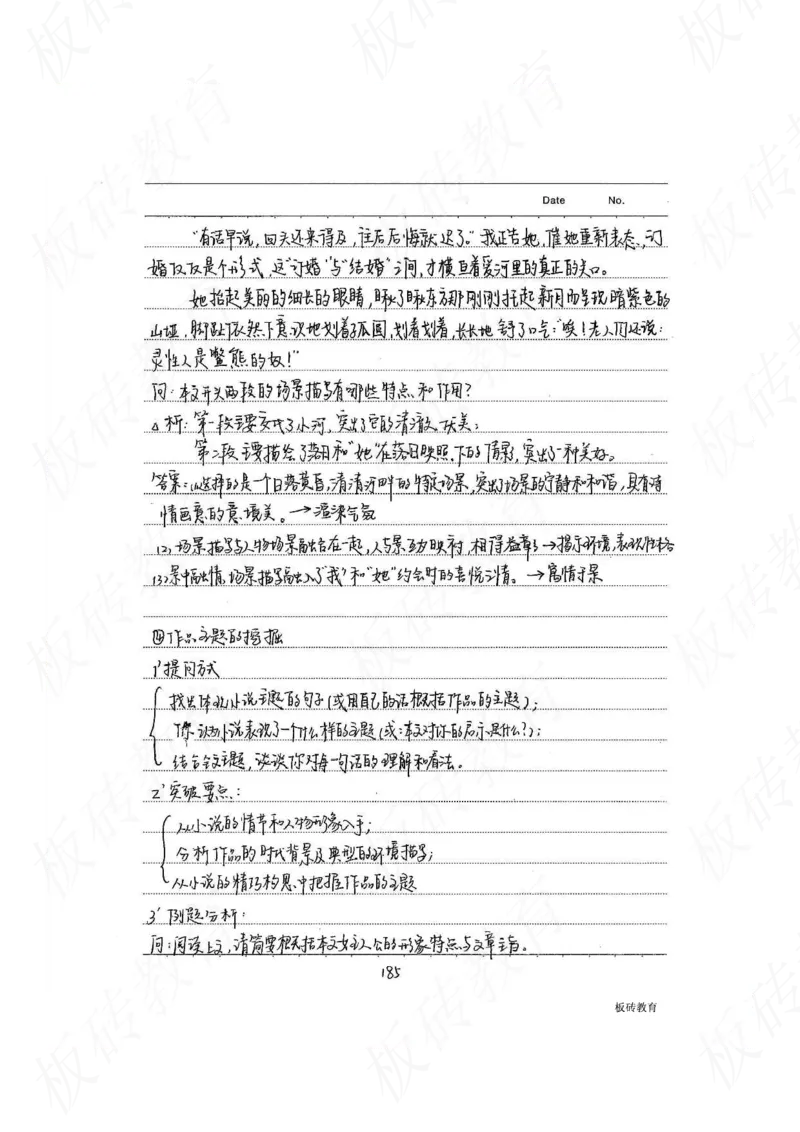 Date No.
"有话早说,回头还来得及,往后后悔就迟了。"我正告她,催她重新表态,订
婚仅仅是个形式,这"订婚"与"结婚"之间,才横亘着爱河里的真正的关口。
她抬起美丽的细长的眼睛,瞅了瞅东方那刚刚托起新月而呈现暗紫色的
山垭,脚趾下依然下意识地划着孤圆,划着划着,长长地舒了口气:"唉!老人们还说:
灵性人是鳖熊的奴!"
问:本文开头两段的场景描写有哪些特点和作用?
析:第一段主要交代了小河,突出了它的清澈、优美;
第二段主要描绘了落日和"她"在落日映照下的倩影,突出了一种美好。
答案:(1)选择的是一个日落黄昏,清清河畔的特定场景,突出场景的宁静和和谐,具有诗
情画意的意境美。→渲染气氛
(2)场景描写与人物场景融合在一起,人与景互为映衬,相得益彰→揭示环境,表现性格
(3)景中融情,场景描写融入了"我"和"她"约会时的喜悦之情。→寓情于景
㈣作品主题的挖掘
1'提问方式
找出体现小说主题的句子(或用自己的话概括作品的主题);
你认为小说表现了一个什么样的主题(或:本文对你的启示是什么?);
结合全文主题,谈谈你对每一句话的理解和看法。
2'突破要点:
从小说的情节和人物形象入手;
分析作品的时代背景及典型的环境描写;
从小说的精巧构思中把握作品的主题
3'例题分析:
问:阅读上文,请简要概括本文女主人公的形象特点与文章主旨。
185
板砖教育